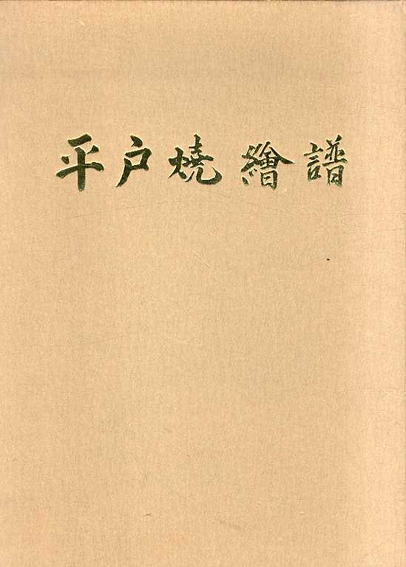 平戸燒繪譜